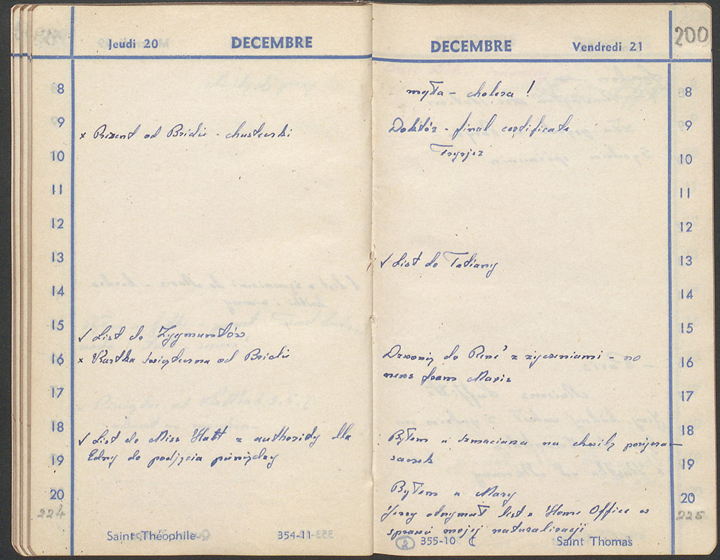 Jeudi 20 DECEMBRE
8
9
x Prezent od Bridż - chusteczki
10
11
12
13
14
15
√ List do Zygmuntów
16
x Kartka świąteczna od Bridż
17
18
√ List do Miss Hatt z authority dla
19
Edny do podjęcia pieniędzy
20
224
Saint Théophile 354-11
DECEMBRE Vendredi 21 200
myła - cholera !
8
Doktór - final certificate
9
Fryzjer
10
11
12
√ List do Tatiany
13
14
15
Dzwonię do René z życzeniami - no
16
news from Marie
17
Byłem u na chwilę
18
19
Byłem u Mary
20
Jerzy otrzymał list z Home Office w
225
sprawie mojej naturalizacji
355-10 Saint Thomas